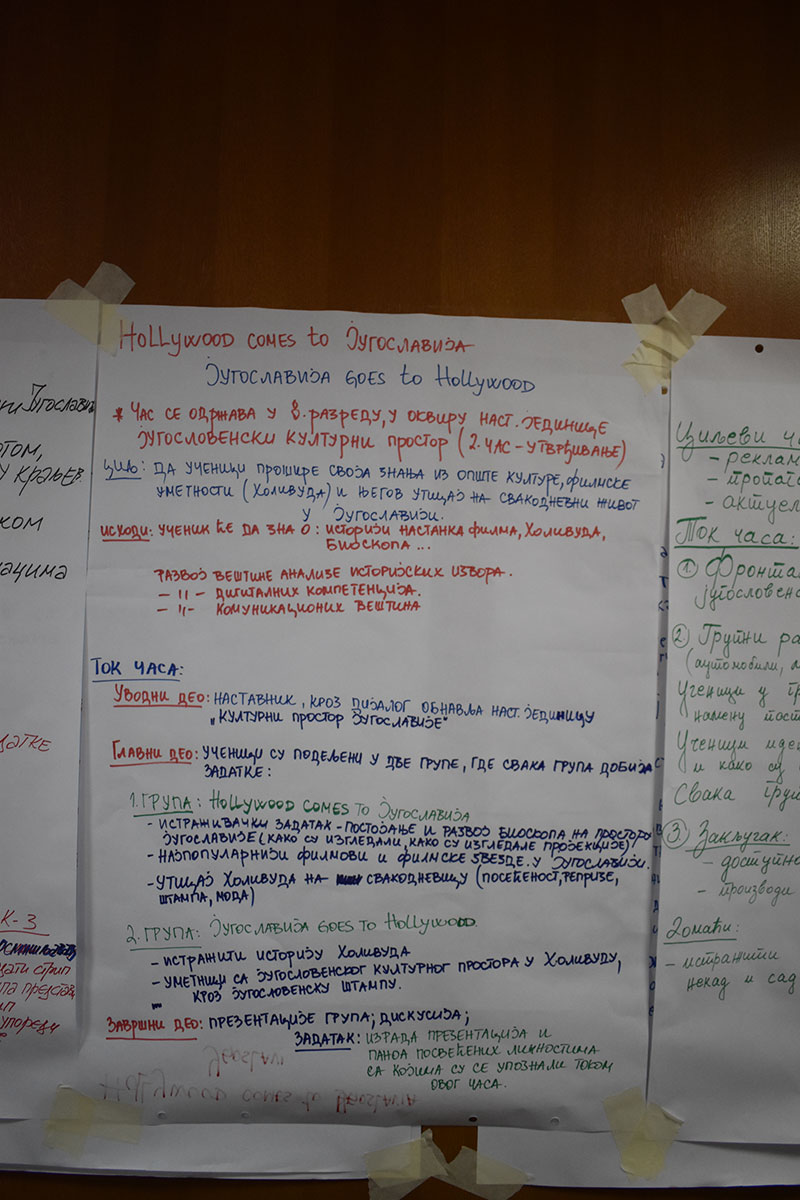 Hollywood comes to Југославија
Југославија goes to Hollywood
* Час се одржава у 8. разреду, у оквиру наст. јединице
Југословенски културни простор (2. час - утврђивање)
Циљ: да ученици прошире своја знања из опште културе, филмске
уметности (Холивуда) и његов утицај на свакодневни живот
у Југославији.
Исходи: ученик ће да зна о: историји настанка филма, Холивуда,
биоскопа ...
развој вештине анализе историјских извора.
- 11 - дигиталних компетенција.
- 11 - комуникационих вештина
Ток часа:
Уводни део: наставник, кроз дијалог обнавља наст. јединицу
„Културни простор Југославије"
Главни део: ученици су подељени у две групе, где свака група добија
задатке:
1. група: Hollywood comes to Југославија
- истраживачки задатак - постојање и развој биоскопа на простору
Југославије (како су изгледали, како су изгледале пројекције)
- најпопуларнији филмови и филмске звезде у Југославији.
- утицај Холивуда на свакодневицу (посећеност, реприѕе,
штампа, мода)
2. група: Југославија goes to Hollywood.
- истражити историју Холивуда
- уметници са југословенског културног простора у Холивуду,
кроз југословенску штампу.
Завршни део: презентације група; дискусија;
Задатак: израда презентација и
паноа посвећених личностима
са којима су се упознали током
овог часа.
Југослави
том,
у Краљев.
ком
ацима
датке
К-3
цати стрип
па представ
упореди
Циљеви ч
- реклам
- пропага
- актуел
Ток часа:
① Фронтал
југословенс
② Групни ра
(аутомобили,
Ученици у гр
намену пост
Ученици иде
и како су
Свака груп
③ Закључак:
- доступно
- производи
Домаћи:
- истражити
некад и сад